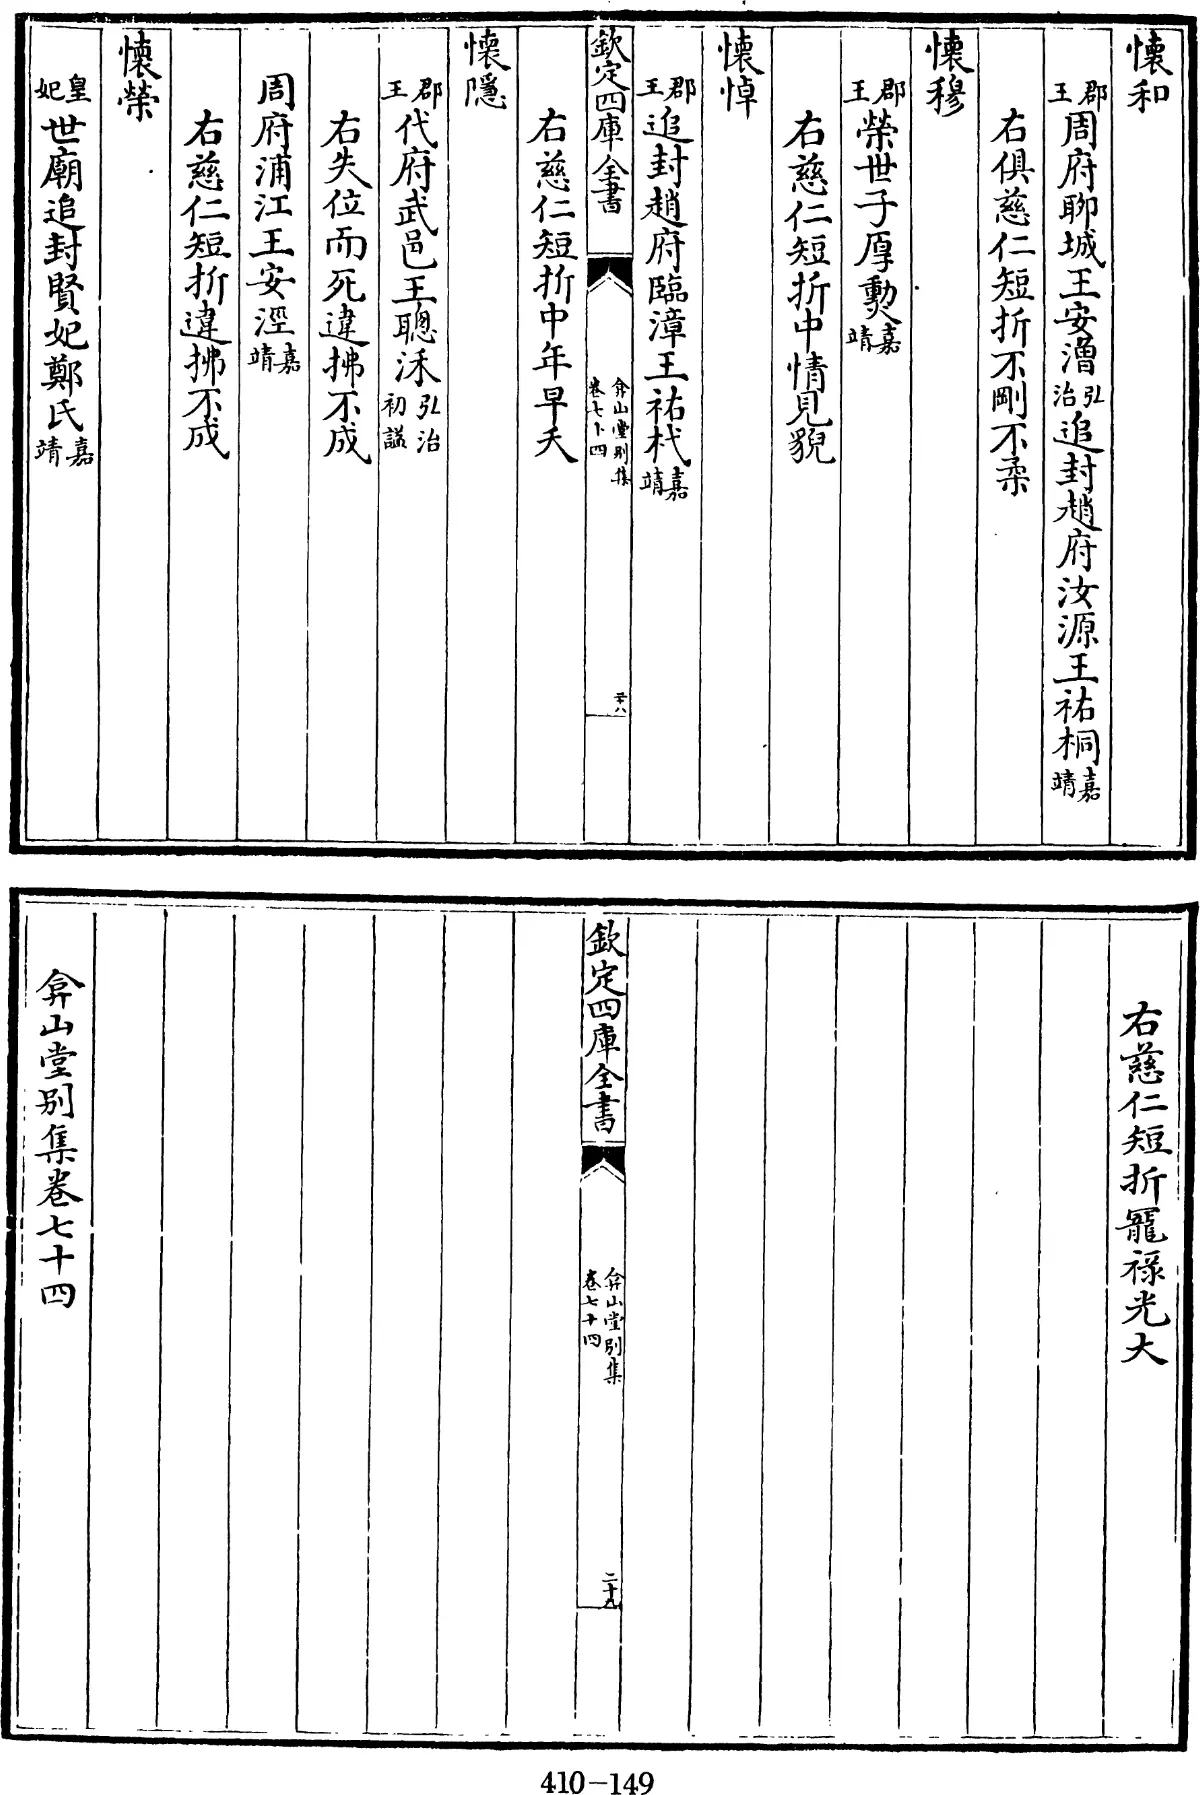 懷和
郡王周府聊城王安漕弘治追封趙府汝源王祐桐嘉靖
右俱慈仁短折不剛不柔
懷穆
郡王榮世子厚勳嘉靖
右慈仁短折中情見貌
懷悼
郡王追封趙府臨漳王祐杙嘉靖
欽定四庫全書
弇山堂別集
卷七十四
二十八
右慈仁短折中年早夭
懷隱
郡王代府武邑王聰沬弘治初謚
右失位而死違拂不成
周府浦江王安涇嘉靖
右慈仁短折違拂不成
懷榮
皇妃世廟追封賢妃鄭氏嘉靖
右慈仁短折寵祿光大
欽定四庫全書
弇山堂別集
卷七十四
二十九
弇山堂別集卷七十四
410-149